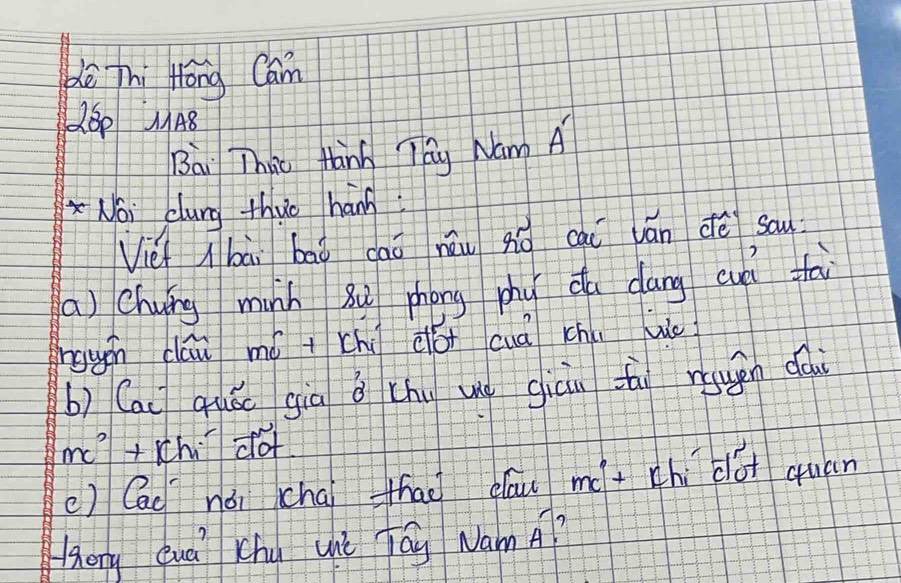 Lê Thị Hồng Cẩm
Lớp 11A8
Bài Thực Hành Tây Nam Á
* Nội dung thực hành :
Viết 1 bài báo cáo nêu rõ các vấn đề sau:
a) Chứng minh sự phong phú đa dạng của tài
nguyên dầu mỏ + khí đốt của khu vực.
b) Các quốc gia ở khu vực giàu tài nguyên dầu
mỏ + khí đốt.
c) Các nơi khai thác dầu mỏ + khí đốt quan
trọng của khu vực Tây Nam Á?